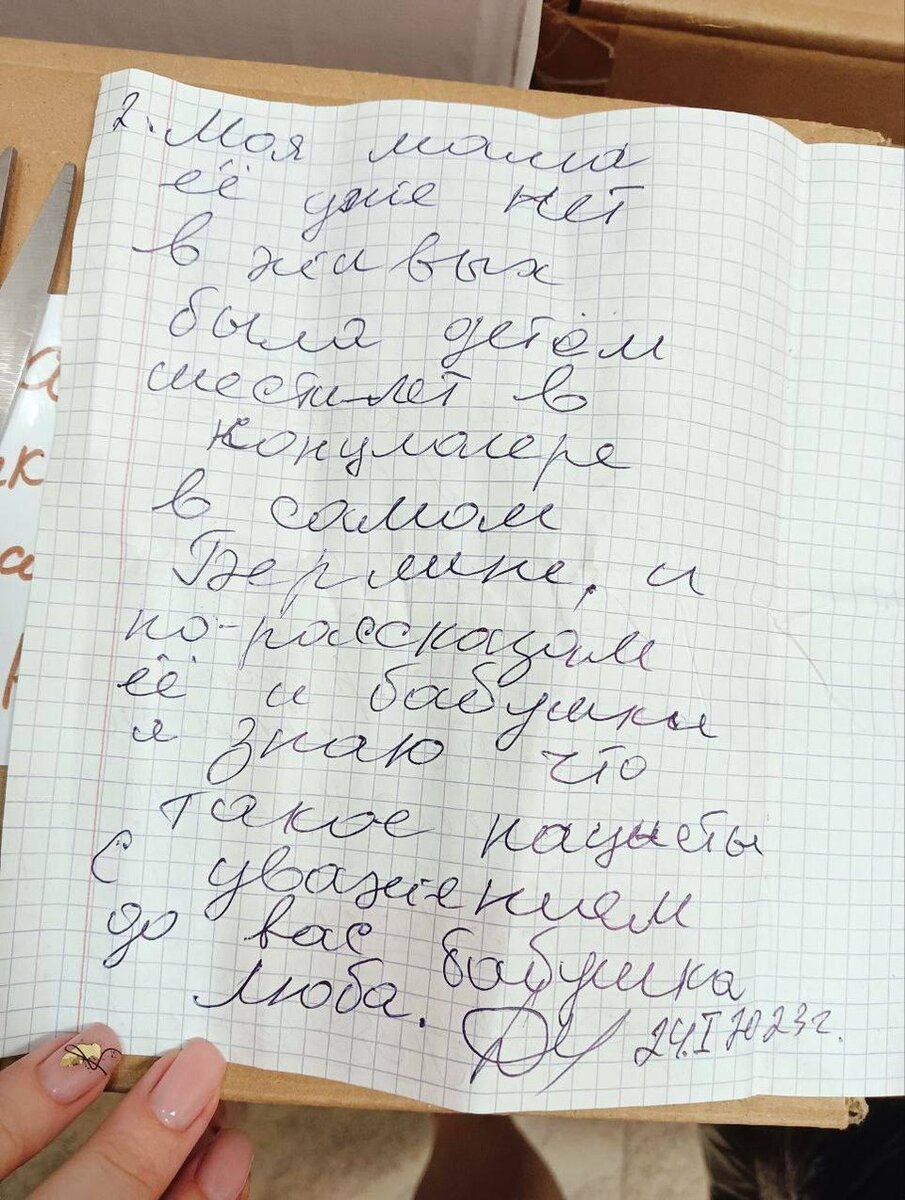 2. Моя мама
её уже нет
в живых
была детём
шести лет в
концлагере
в самом
Берлине, и
по-рассказам
её и бабушки
я знаю что
такое нацысты
С уважением
до вас бабушка
Люба.
24.I 2023г.